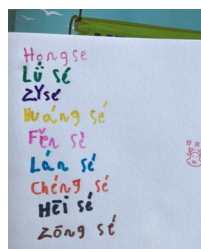 Hongse
Lǜ sé
ZYsé
Huáng sé
Fěn sè
Lán sé
Chéng sé
HĒi sé
Zōng sé